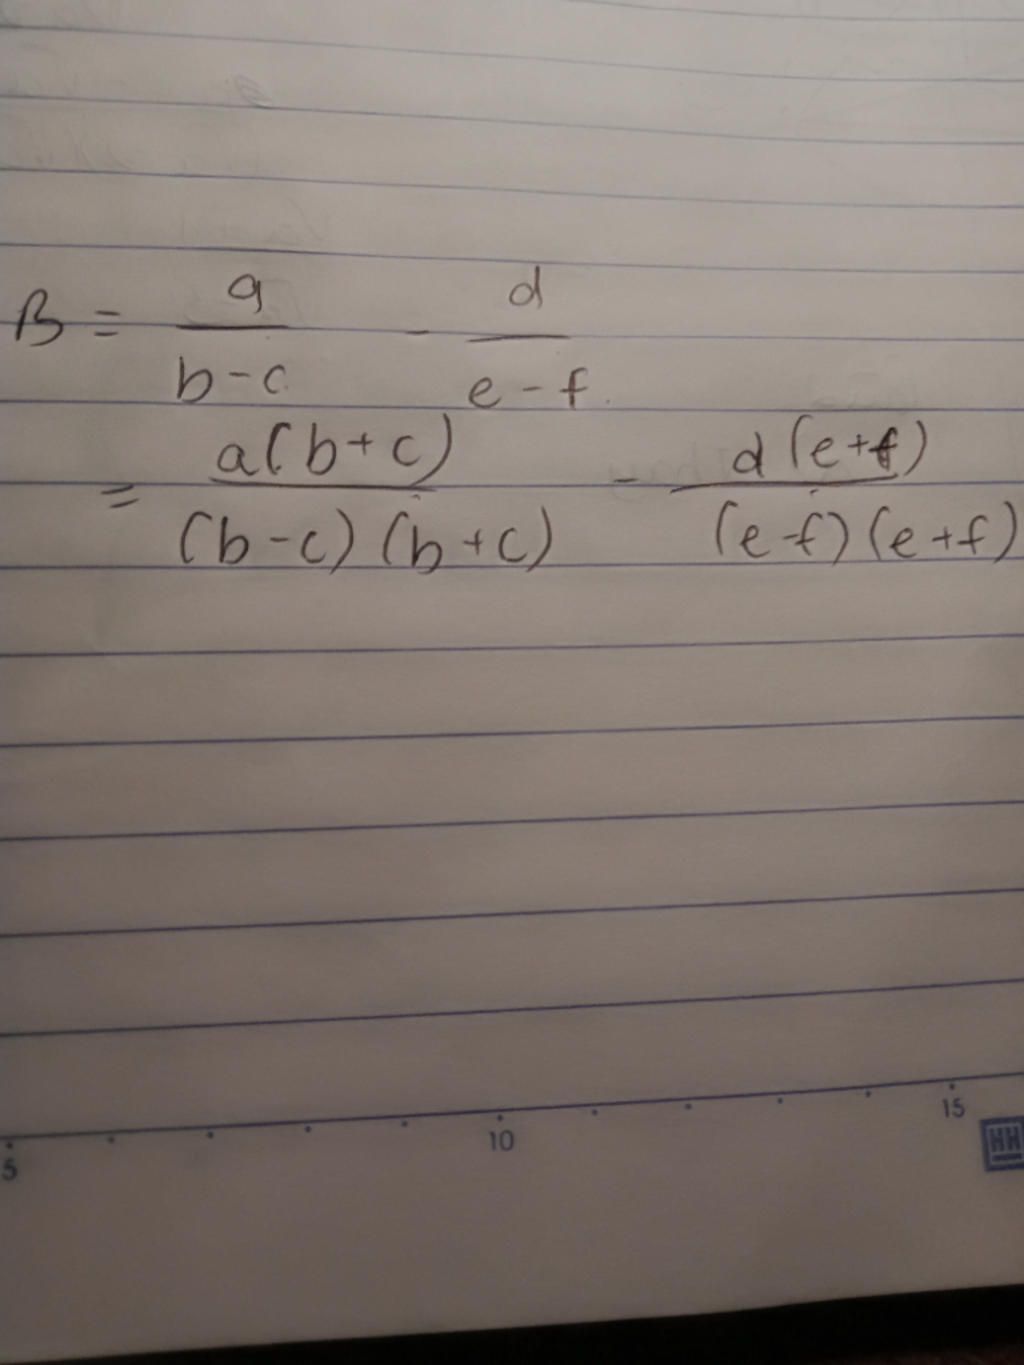 B = a/(b-c) - d/(e-f)
= a(b+c)/((b-c)(b+c)) - d(e+f)/((e-f)(e+f))
5 10 15
HH